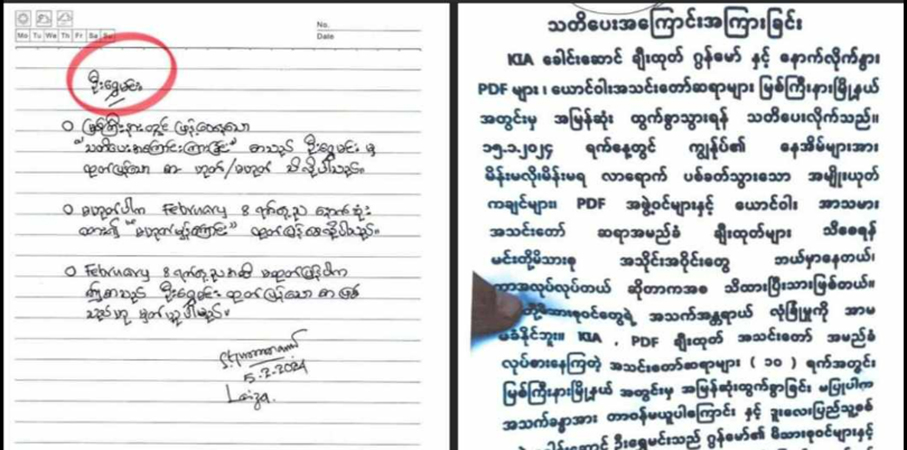 No.
Date
Mo Tu We Th Fr Sa Su
ဦးရွှေမင်း
မြစ်ကြီးနားတွင် ဖြန့်ဝေသော
"သတိပေးအကြောင်းကြားခြင်း" စာသည် ဦးရွှေမင်း မှ
ထုတ်ပြန်သော စာ ဟုတ်/မဟုတ် သိလိုပါသည်။
မဟုတ်ပါက February 8 ရက်နေ့ည နောက်ဆုံး
"မဟုတ်မှန်ကြောင်း" ထုတ်ပြန်စေလိုပါသည်။
February 8 ရက်နေ့ည မထုတ်ပြန်ပါက
ဤစာသည် ဦးရွှေမင်း ထုတ်ပြန်သော စာ ဖြစ်
သည်ဟု မှတ်ယူပါမည်။
5.2.2024
Laiza.
သတိပေးအကြောင်းအကြားခြင်း
KIA ခေါင်းဆောင် ချီးထုတ် ဂွန်မော် နှင့် နောက်လိုက်နွား
PDF များ ၊ ယောင်ဝါးအသင်းတော်ဆရာများ မြစ်ကြီးနားမြို့နယ်
အတွင်းမှ အမြန်ဆုံး ထွက်ခွာသွားရန် သတိပေးလိုက်သည်။
၁၅.၁.၂၀၂၄ ရက်နေ့တွင် ကျွန်ုပ်၏ နေအိမ်များအား
မိန်းမလိုးမိန်းမရ လာရောက် ပစ်ခတ်သွားသော အမျိုးယုတ်
ကချင်များ၊ PDF အဖွဲ့ဝင်များနှင့် ယောင်ဝါး အာသမား
အသင်းတော် ဆရာအမည်ခံ ချီးထုတ်များ သိစေရန်
မင်းတို့မိသားစု အသိုင်းအဝိုင်းတွေ ဘယ်မှာနေတယ်၊
ဘာအလုပ်လုပ်တယ် ဆိုတာကအစ သိထားပြီးသားဖြစ်တယ်။
တို့မိသားစုဝင်တွေရဲ့ အသက်အန္တရာယ် လုံခြုံမှုကို အာမ
မခံနိုင်ဘူး။ KIA , PDF ချီးထုတ် အသင်းတော် အမည်ခံ
လုပ်စားနေကြတဲ့ အသင်းတော်ဆရာများ ( ၁၀ ) ရက်အတွင်း
မြစ်ကြီးနားမြို့နယ် အတွင်းမှ အမြန်ဆုံးထွက်ခွာခြင်း မပြုပါက
အသက်ခန္ဓာအား တာဝန်မယူပါကြောင်း နှင့် ဒူးလေးပြည်သူ့စစ်
ခေါင်းဆောင် ဦးရွှေမင်းသည် ဂွန်မော်၏ မိသားစုဝင်များနှင့်